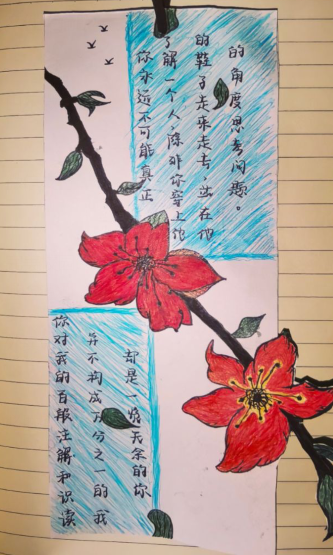 你永远不可能真正
了解一个人,除非你穿上他
的鞋子走来走去,站在他
的角度思考问题。
你对我的百般注解和识读
并不构成万分之一的我
却是一览无余的你